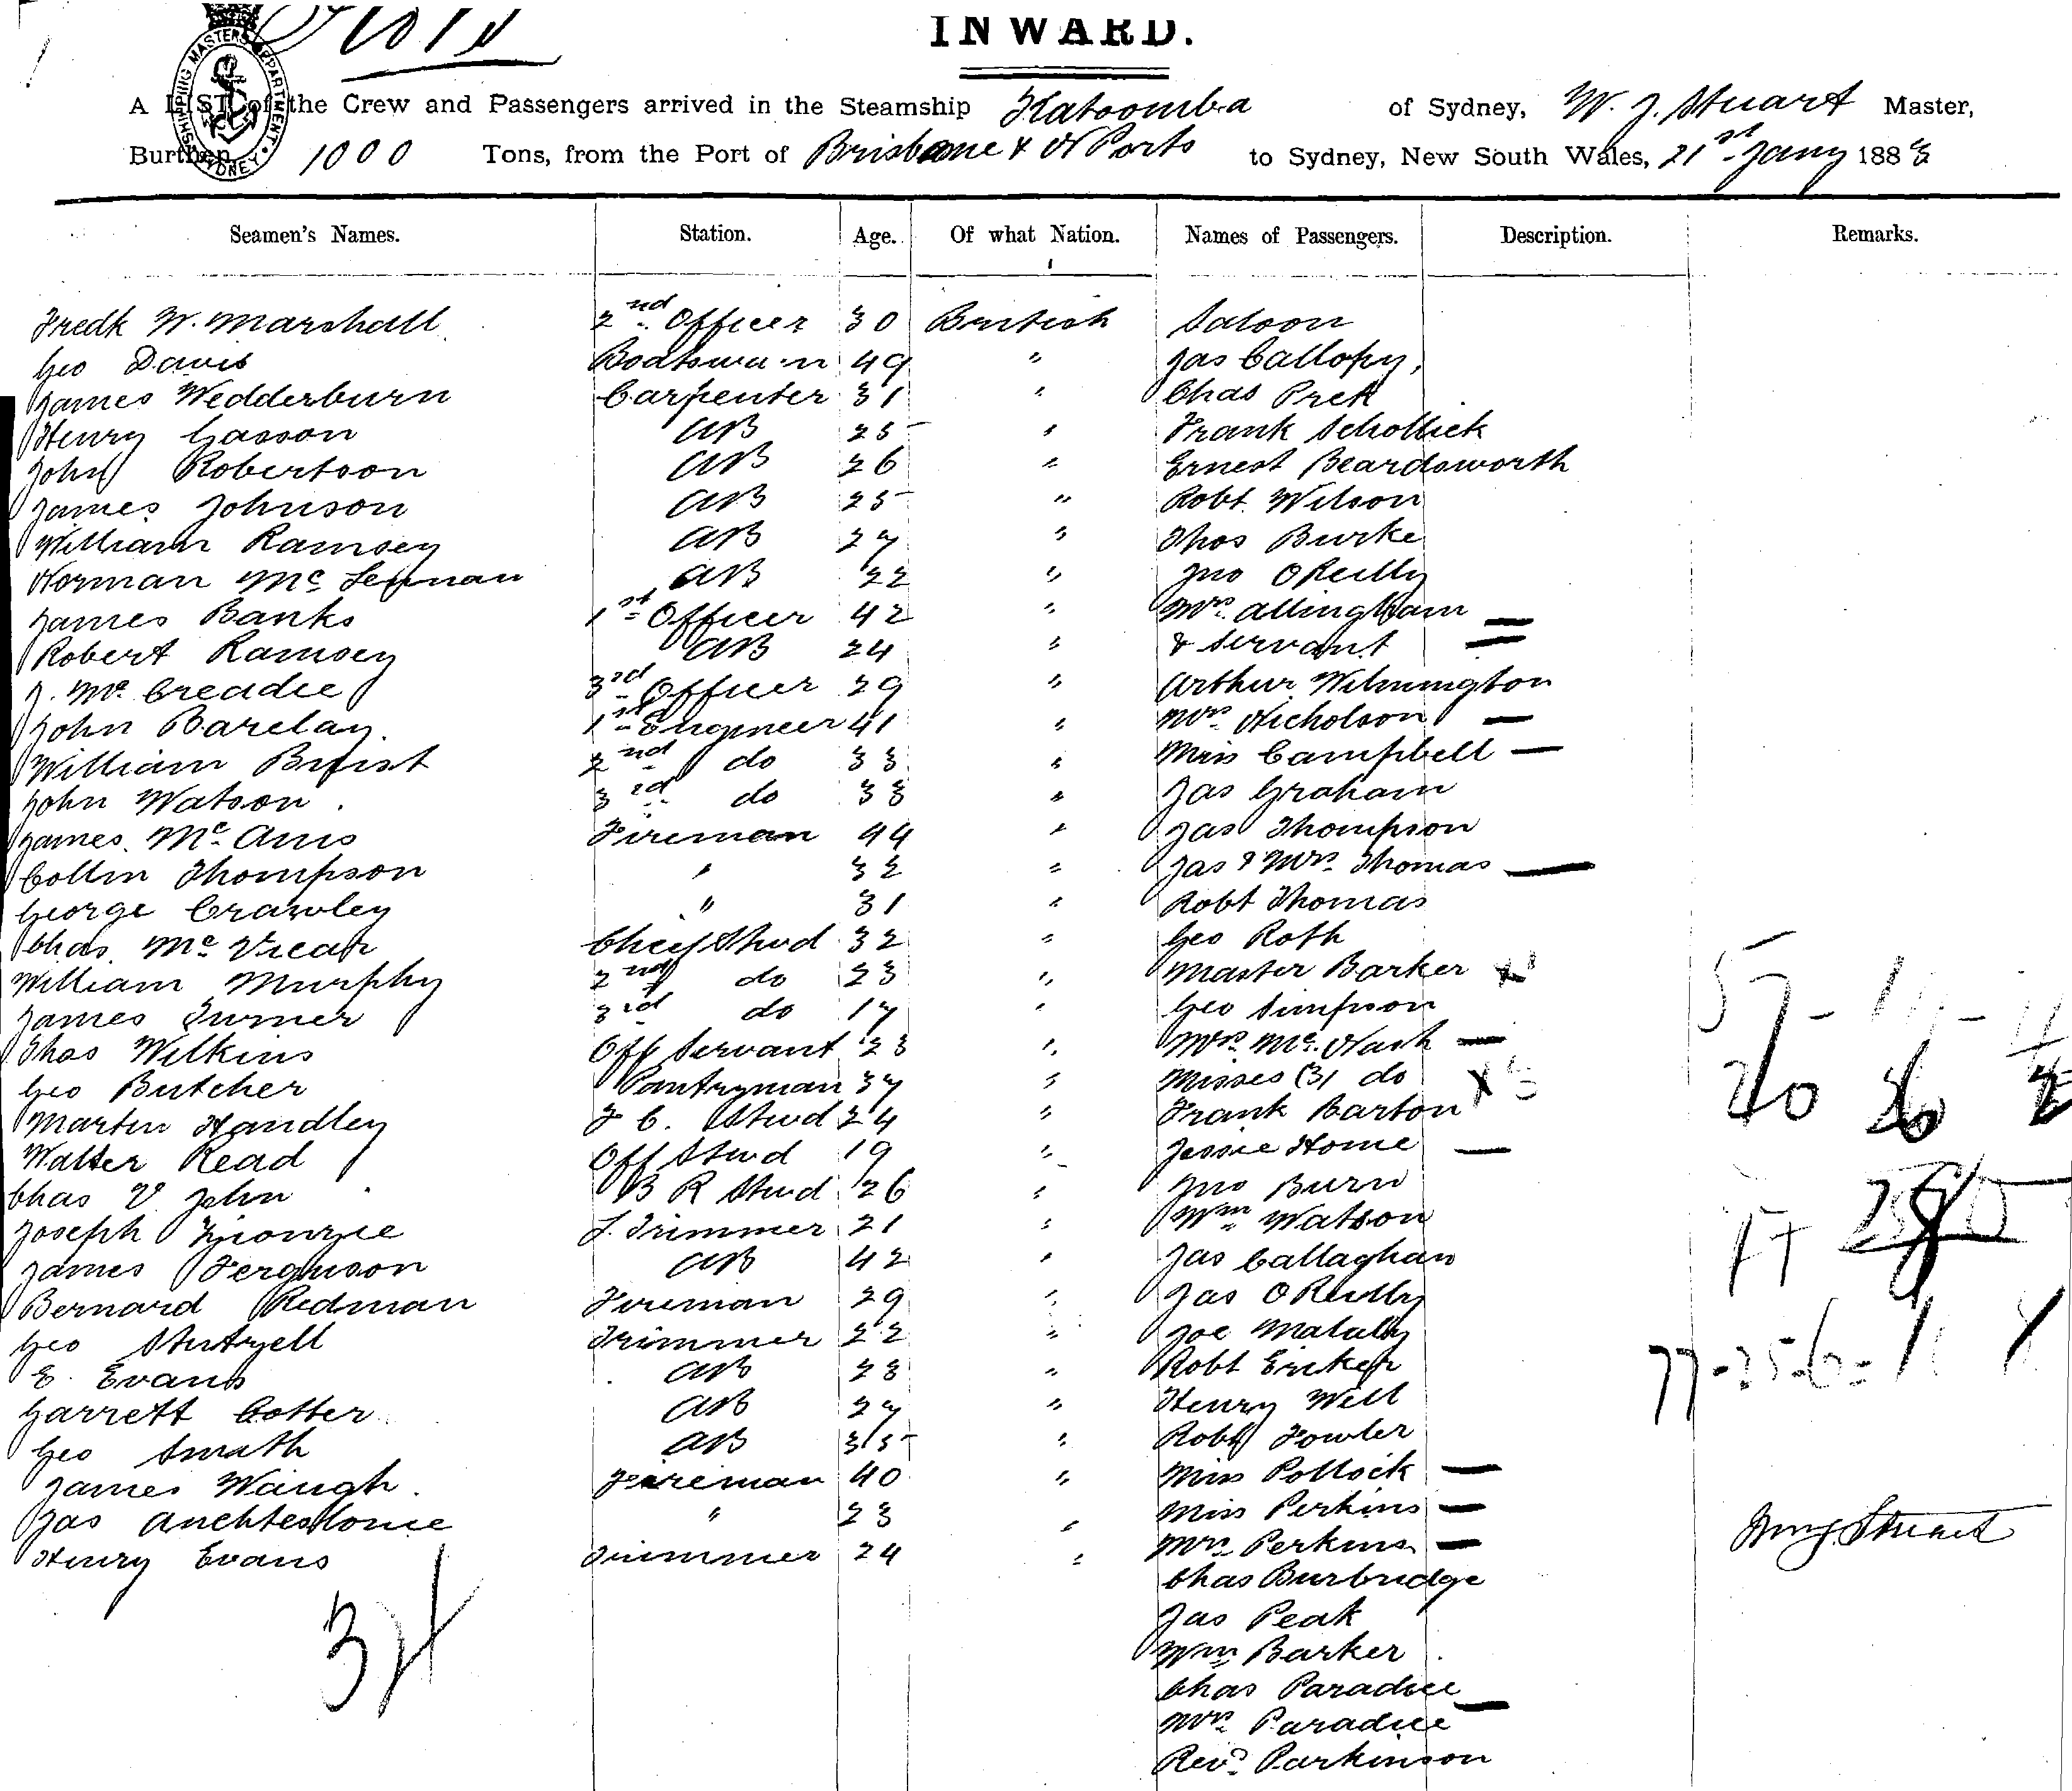 INWARD.
A LIST of the Crew and Passengers arrived in the Steamship Katoomba of Sydney, W. J. Stuart Master,
Burthen 1000 Tons, from the Port of Brisbane & N Ports to Sydney, New South Wales, 21st Jany 1883
SHIPPING MASTERS DEPARTMENT SYDNEY
Seamen's Names. Station. Age. Of what Nation. Names of Passengers. Description. Remarks.
Fredk W. Marshall 2nd Officer 30 British Saloon
Geo Davis Boatswain 49 " Jas Callopy,
James Wedderburn Carpenter 31 " Chas Prett
Henry Gasson AB 25 " Frank Schollick
John Robertson AB 26 " Ernest Beardsworth
James Johnson AB 25 " Robt Wilson
William Ramsey AB 27 " Thos Burke
Norman Mc Lennan AB 22 " Jno OReilly
James Banks 1st Officer 42 " Mrs Allingham —
Robert Ramsey AB 24 " & Servant —
J. Mc Creadie 3rd Officer 29 " Arthur Wilmington
John Barclay 1st Engineer 41 " Mrs Nicholson —
William Brust 2nd do 33 " Miss Campbell —
John Watson 3rd do 33 " Jas Graham
James Mc Anis Fireman 44 " Jas Thompson
Collin Thompson " 32 " Jas & Mrs Thomas —
George Crawley " 31 " Robt Thomas
Chas Mc Vicar Chief Stwd 32 " Geo Roth
William Murphy 2nd do 23 " Master Barker
James Turner 3rd do 17 " Geo Simpson
Thos Wilkins Off Servant 23 " Mrs Mc Nash —
Geo Butcher Pantryman 37 " Misses (3) do X 3
Martin Handley F C. Stwd 24 " Frank Barton
Walter Read Off Stwd 19 " Jessie Home —
Chas V John B R Stwd 26 " Jno Burn
Joseph F. Trimmer 21 " Wm Watson
James Ferguson AB 42 " Jas Callaghan
Bernard Redman Fireman 29 " Jas OReilly
Geo Trimmer 22 " Joe
E. Evans AB 23 " Robt
Garrett Cotter AB 27 " Henry Well
Geo Smith AB 35 " Robt Fowler
James Waugh Fireman 40 " Miss Pollock —
Jas " 23 " Miss Perkins —
Henry Evans Trimmer 24 " Mrs Perkins —
Chas Burbridge
Jas Peak
Wm Barker
Chas Paradice
Mrs Paradice —
Revd Parkinson
34
Wm J. Stuart